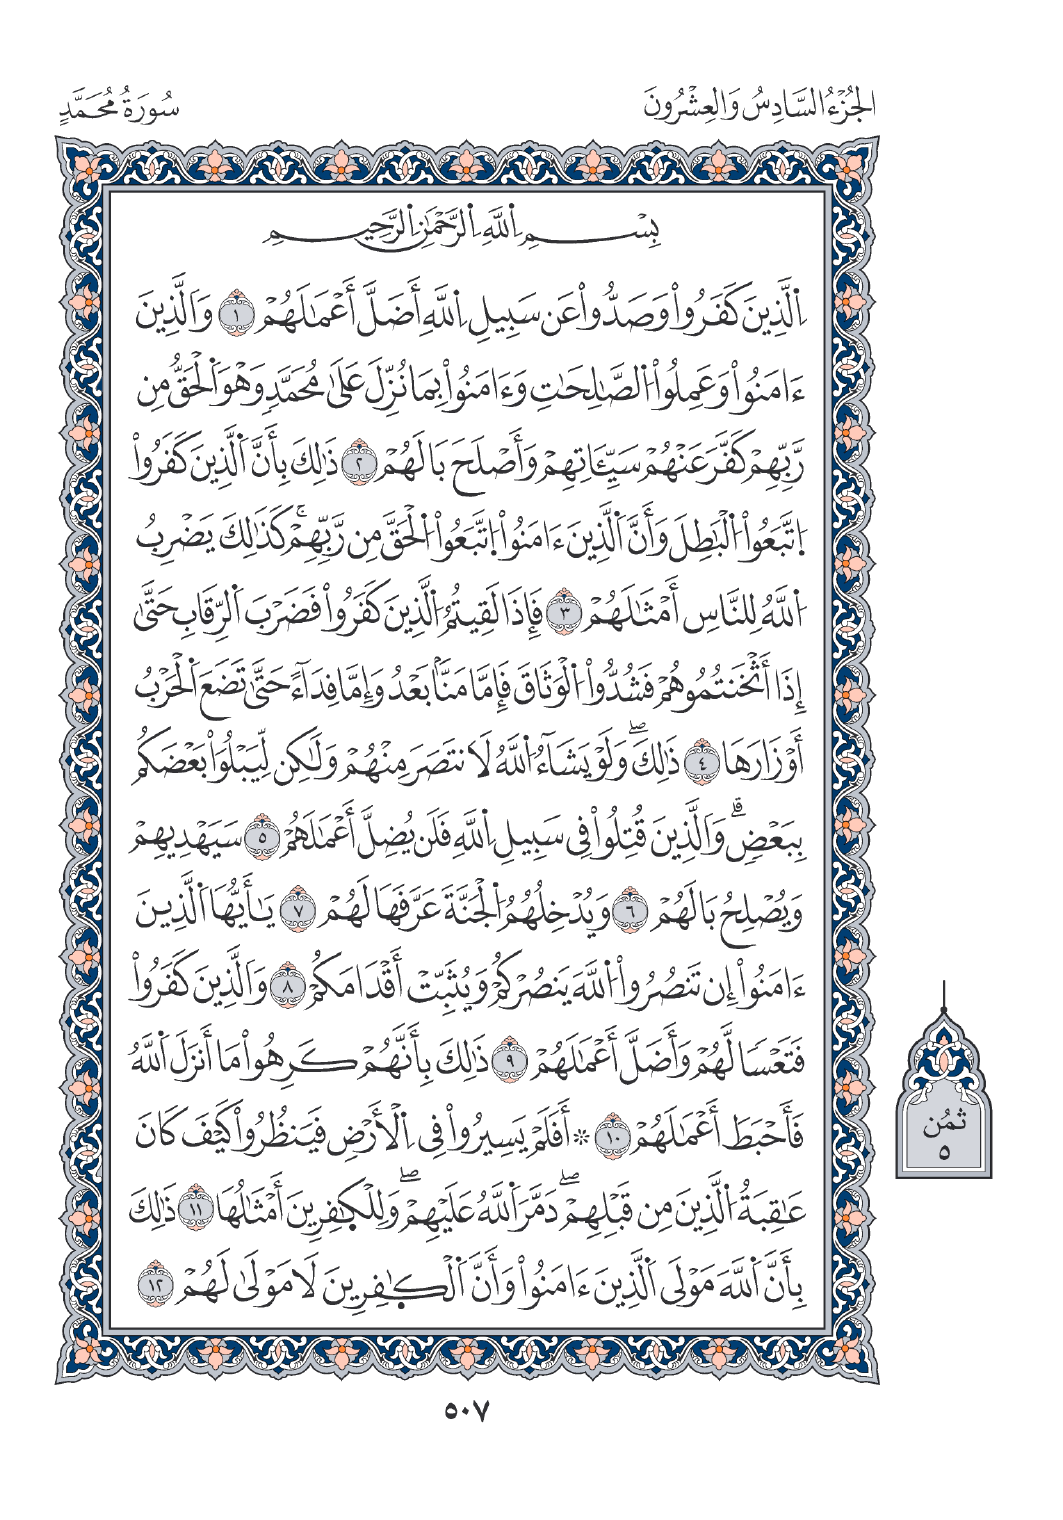 الجُزْءُ السَّادِسُ وَالعِشْرُونَ
سُورَةُ مُحَمَّدٍ
بِسْمِ اِ۬للَّهِ اِ۬لرَّحْمَٰنِ اِ۬لرَّحِيمِ
اِ۬لَّذِينَ كَفَرُواْ وَصَدُّواْ عَن سَبِيلِ اِ۬للَّهِ أَضَلَّ أَعْمَٰلَهُمْ ١ وَالَّذِينَ
ءَامَنُواْ وَعَمِلُواْ اُ۬لصَّٰلِحَٰتِ وَءَامَنُواْ بِمَا نُزِّلَ عَلَىٰ مُحَمَّدٖ وَهْوَ اَ۬لْحَقُّ مِن
رَّبِّهِمْ كَفَّرَ عَنْهُمْ سَيِّـَٔاتِهِمْ وَأَصْلَحَ بَالَهُمْ ٢ ذَٰلِكَ بِأَنَّ اَ۬لَّذِينَ كَفَرُواْ
اُ۪تَّبَعُواْ اُ۬لْبَٰطِلَ وَأَنَّ اَ۬لَّذِينَ ءَامَنُواْ اُ۪تَّبَعُواْ اُ۬لْحَقَّ مِن رَّبِّهِمْۚ كَذَٰلِكَ يَضْرِبُ
اُ۬للَّهُ لِلنَّاسِ أَمْثَٰلَهُمْ ٣ فَإِذَا لَقِيتُمُ اُ۬لَّذِينَ كَفَرُواْ فَضَرْبَ اَ۬لرِّقَابِ حَتَّىٰ
إِذَا أَثْخَنتُمُوهُمْ فَشُدُّواْ اُ۬لْوَثَاقَ فَإِمَّا مَنّاَۢ بَعْدُ وَإِمَّا فِدَآءً حَتَّىٰ تَضَعَ اَ۬لْحَرْبُ
أَوْزَارَهَا ٤ ذَٰلِكَۖ وَلَوْ يَشَآءُ اُ۬للَّهُ لَانتَصَرَ مِنْهُمْ وَلَٰكِن لِّيَبْلُوَاْ بَعْضَكُم
بِبَعْضٖۗ وَالَّذِينَ قُتِلُواْ فِي سَبِيلِ اِ۬للَّهِ فَلَن يُضِلَّ أَعْمَٰلَهُمْ ٥ سَيَهْدِيهِمْ
وَيُصْلِحُ بَالَهُمْ ٦ وَيُدْخِلُهُمُ اُ۬لْجَنَّةَ عَرَّفَهَا لَهُمْ ٧ يَٰأَيُّهَا اَ۬لَّذِينَ
ءَامَنُواْ إِن تَنصُرُواْ اُ۬للَّهَ يَنصُرْكُمْ وَيُثَبِّتْ أَقْدَامَكُمْ ٨ وَالَّذِينَ كَفَرُواْ
فَتَعْسًا لَّهُمْ وَأَضَلَّ أَعْمَٰلَهُمْ ٩ ذَٰلِكَ بِأَنَّهُمْ كَرِهُواْ مَا أَنزَلَ اَ۬للَّهُ
فَأَحْبَطَ أَعْمَٰلَهُمْ ١٠ ۞ أَفَلَمْ يَسِيرُواْ فِي اِ۬لْأَرْضِ فَيَنظُرُواْ كَيْفَ كَانَ
عَٰقِبَةُ اُ۬لَّذِينَ مِن قَبْلِهِمْۖ دَمَّرَ اَ۬للَّهُ عَلَيْهِمْۖ وَلِلْكَٰفِرِينَ أَمْثَٰلُهَا ١١ ذَٰلِكَ
بِأَنَّ اَ۬للَّهَ مَوْلَى اَ۬لَّذِينَ ءَامَنُواْ وَأَنَّ اَ۬لْكَٰفِرِينَ لَا مَوْلَىٰ لَهُمْ ١٢
ثُمُن
٥
٥٠٧